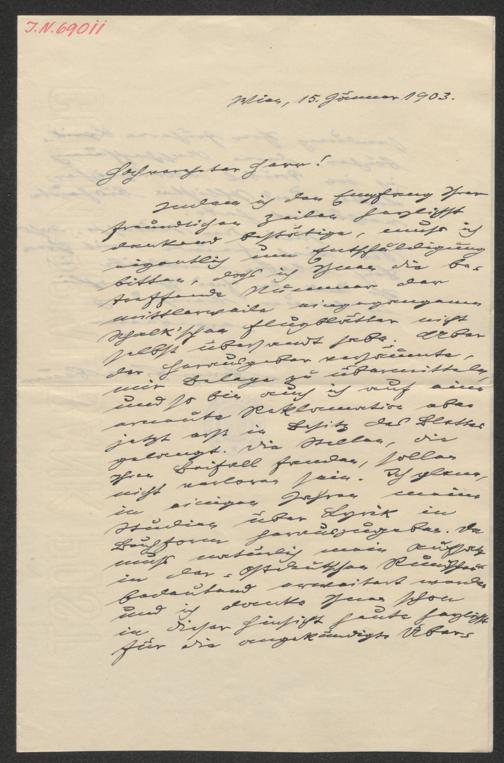 J.N. 69011
Wien, 15. Jänner 1903.
Hochverehrter Herr!
Indem ich den Empfang Ihrer
freundlichen Zeilen herzlichst
dankend bestätige, muß ich
eigentlich um Entschuldigung
bitten, daß ich Ihnen die be-
treffende Nummer der
mittlerweile eingegangenen
Schalk'schen Flugblätter nicht
selbst übersandt habe. Aber
der Herausgeber versäumte,
mir Belege zu übermitteln,
und so bin auch ich auf eine
erneute Reklamation aber
jetzt erst in Besitz des Blattes
gelangt. Die Stellen, die
Ihren Beifall fanden, sollen
nicht verloren sein. Ich plane,
in einigen Jahren meine
Studien über Lyrik in
Buchform herauszugeben. Da
muß natürlich mein Aufsatz
in der "Ostdeutschen Rundschau"
bedeutend erweitert werden
und ich danke Ihnen schon
in dieser Hinsicht heute herzlichst
für die angekündigte Übers-